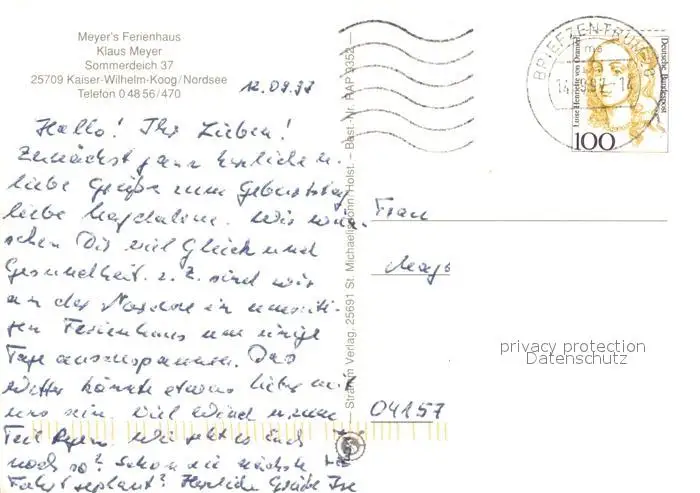 Meyer's Ferienhaus
Klaus Meyer
Sommerdeich 37
25709 Kaiser-Wilhelm-Koog/Nordsee
Telefon 0 48 56/470
12.09.97
Hallo! Ihr Lieben!
Zunächst ganz herzliche u.
liebe Grüße zum Geburtstag
liebe Magdalena. Wir wün-
schen Dir viel Glück und
Gesundheit. z. Z. sind wir
an der Nordsee in
Ferienhaus um einige
Tage auszuspannen. Das
Wetter könnte etwas lieber mit
uns sein. Viel Wind u. zum
Teil Regen. Wie geht es Euch
noch so? Schon die nächste
Fahrt geplant? Herzliche Grüße
Stramm Verlag, 25691 St. Michaelisdonn/Holst. – Best.-Nr. RAP 9352
BRIEFZENTRUM
Deutsche Bundespost
Luise Henriette von Oranien
100
Frau
04157
privacy protection
Datenschutz